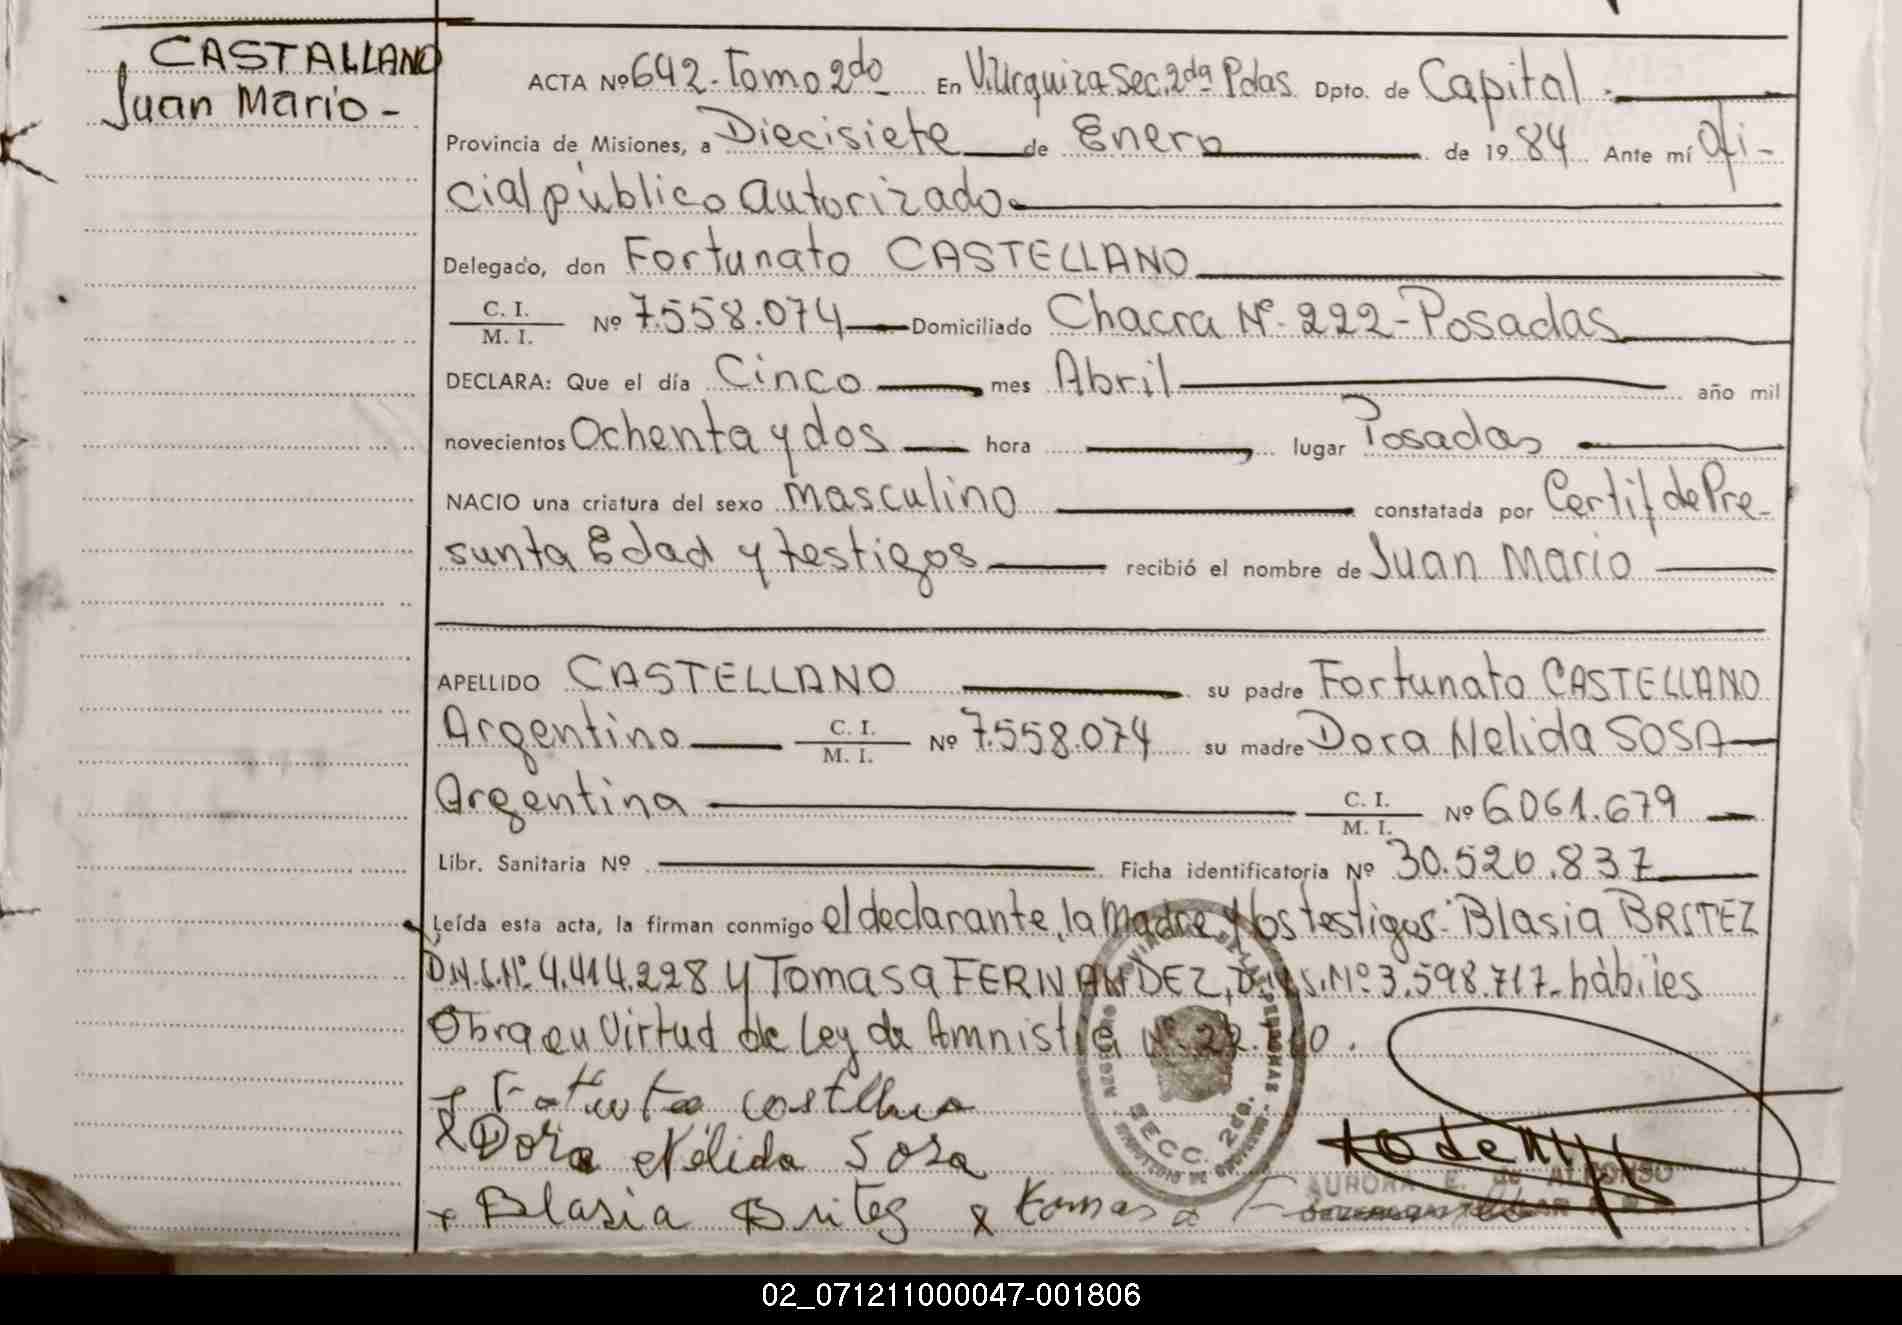 CASTALLANO
Juan Mario -
ACTA Nº 642 - Tomo 2do En V. Urquiza Sec. 2da Pdas. Dpto. de Capital
Provincia de Misiones, a Diecisiete de Enero de 19 84 Ante mí Ofi-
cial público autorizado
Delegado, don Fortunato CASTELLANO
C. I.
M. I.
Nº 7.558.074 Domiciliado Chacra Nº 222 - Posadas
DECLARA: Que el día Cinco mes Abril año mil
novecientos Ochenta y dos hora lugar Posadas
NACIO una criatura del sexo masculino constatada por Certif. de Pre-
sunta Edad y testigos recibió el nombre de Juan Mario
APELLIDO CASTELLANO su padre Fortunato CASTELLANO
Argentino C. I. M. I. Nº 7.558.074 su madre Dora Nelida SOSA
Argentina C. I. M. I. Nº 6.061.679
Libr. Sanitaria Nº Ficha identificatoria Nº 30.520.837
Leída esta acta, la firman conmigo el declarante, la Madre y los testigos: Blasia BRITEZ
Nº 4.414.228 y Tomasa FERNANDEZ, Nº 3.598.717 - hábiles
Obra en Virtud de Ley de Amnistia Nº
Dora Nélida Sosa
Blasia Britez x Tomasa
SECC. 2da.
AURORA E. de ALFONSO
02_071211000047-001806